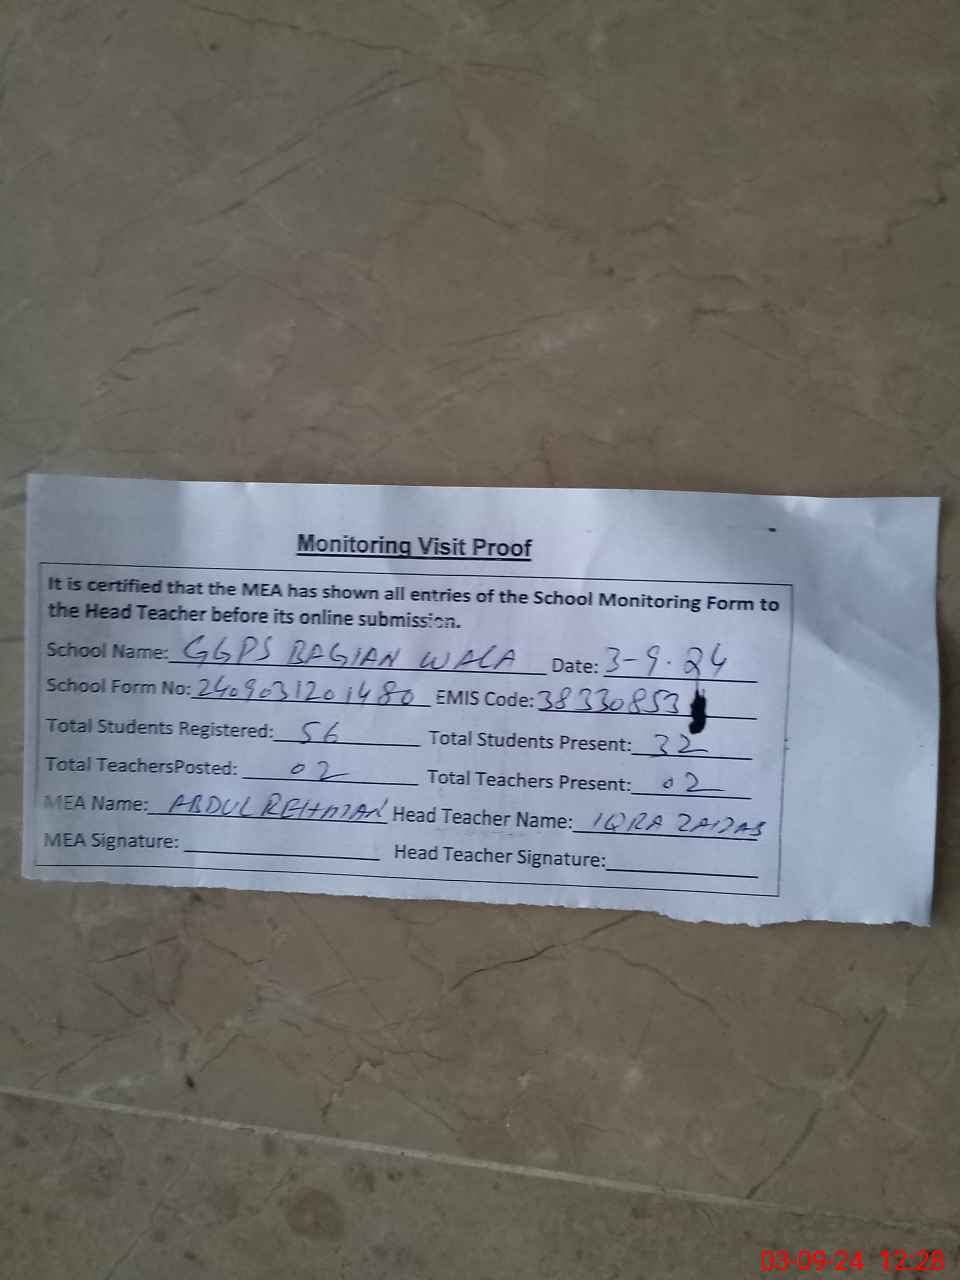 Monitoring Visit Proof
It is certified that the MEA has shown all entries of the School Monitoring Form to
the Head Teacher before its online submission.
School Name: GGPS BAGIAN WALA Date: 3-9-24
School Form No: 2409031201480 EMIS Code: 38330853
Total Students Registered: 56 Total Students Present: 32
Total TeachersPosted: 02 Total Teachers Present: 02
MEA Name: ABDUL REHMAN Head Teacher Name: IQRA
MEA Signature: Head Teacher Signature:
03-09-24 12:28